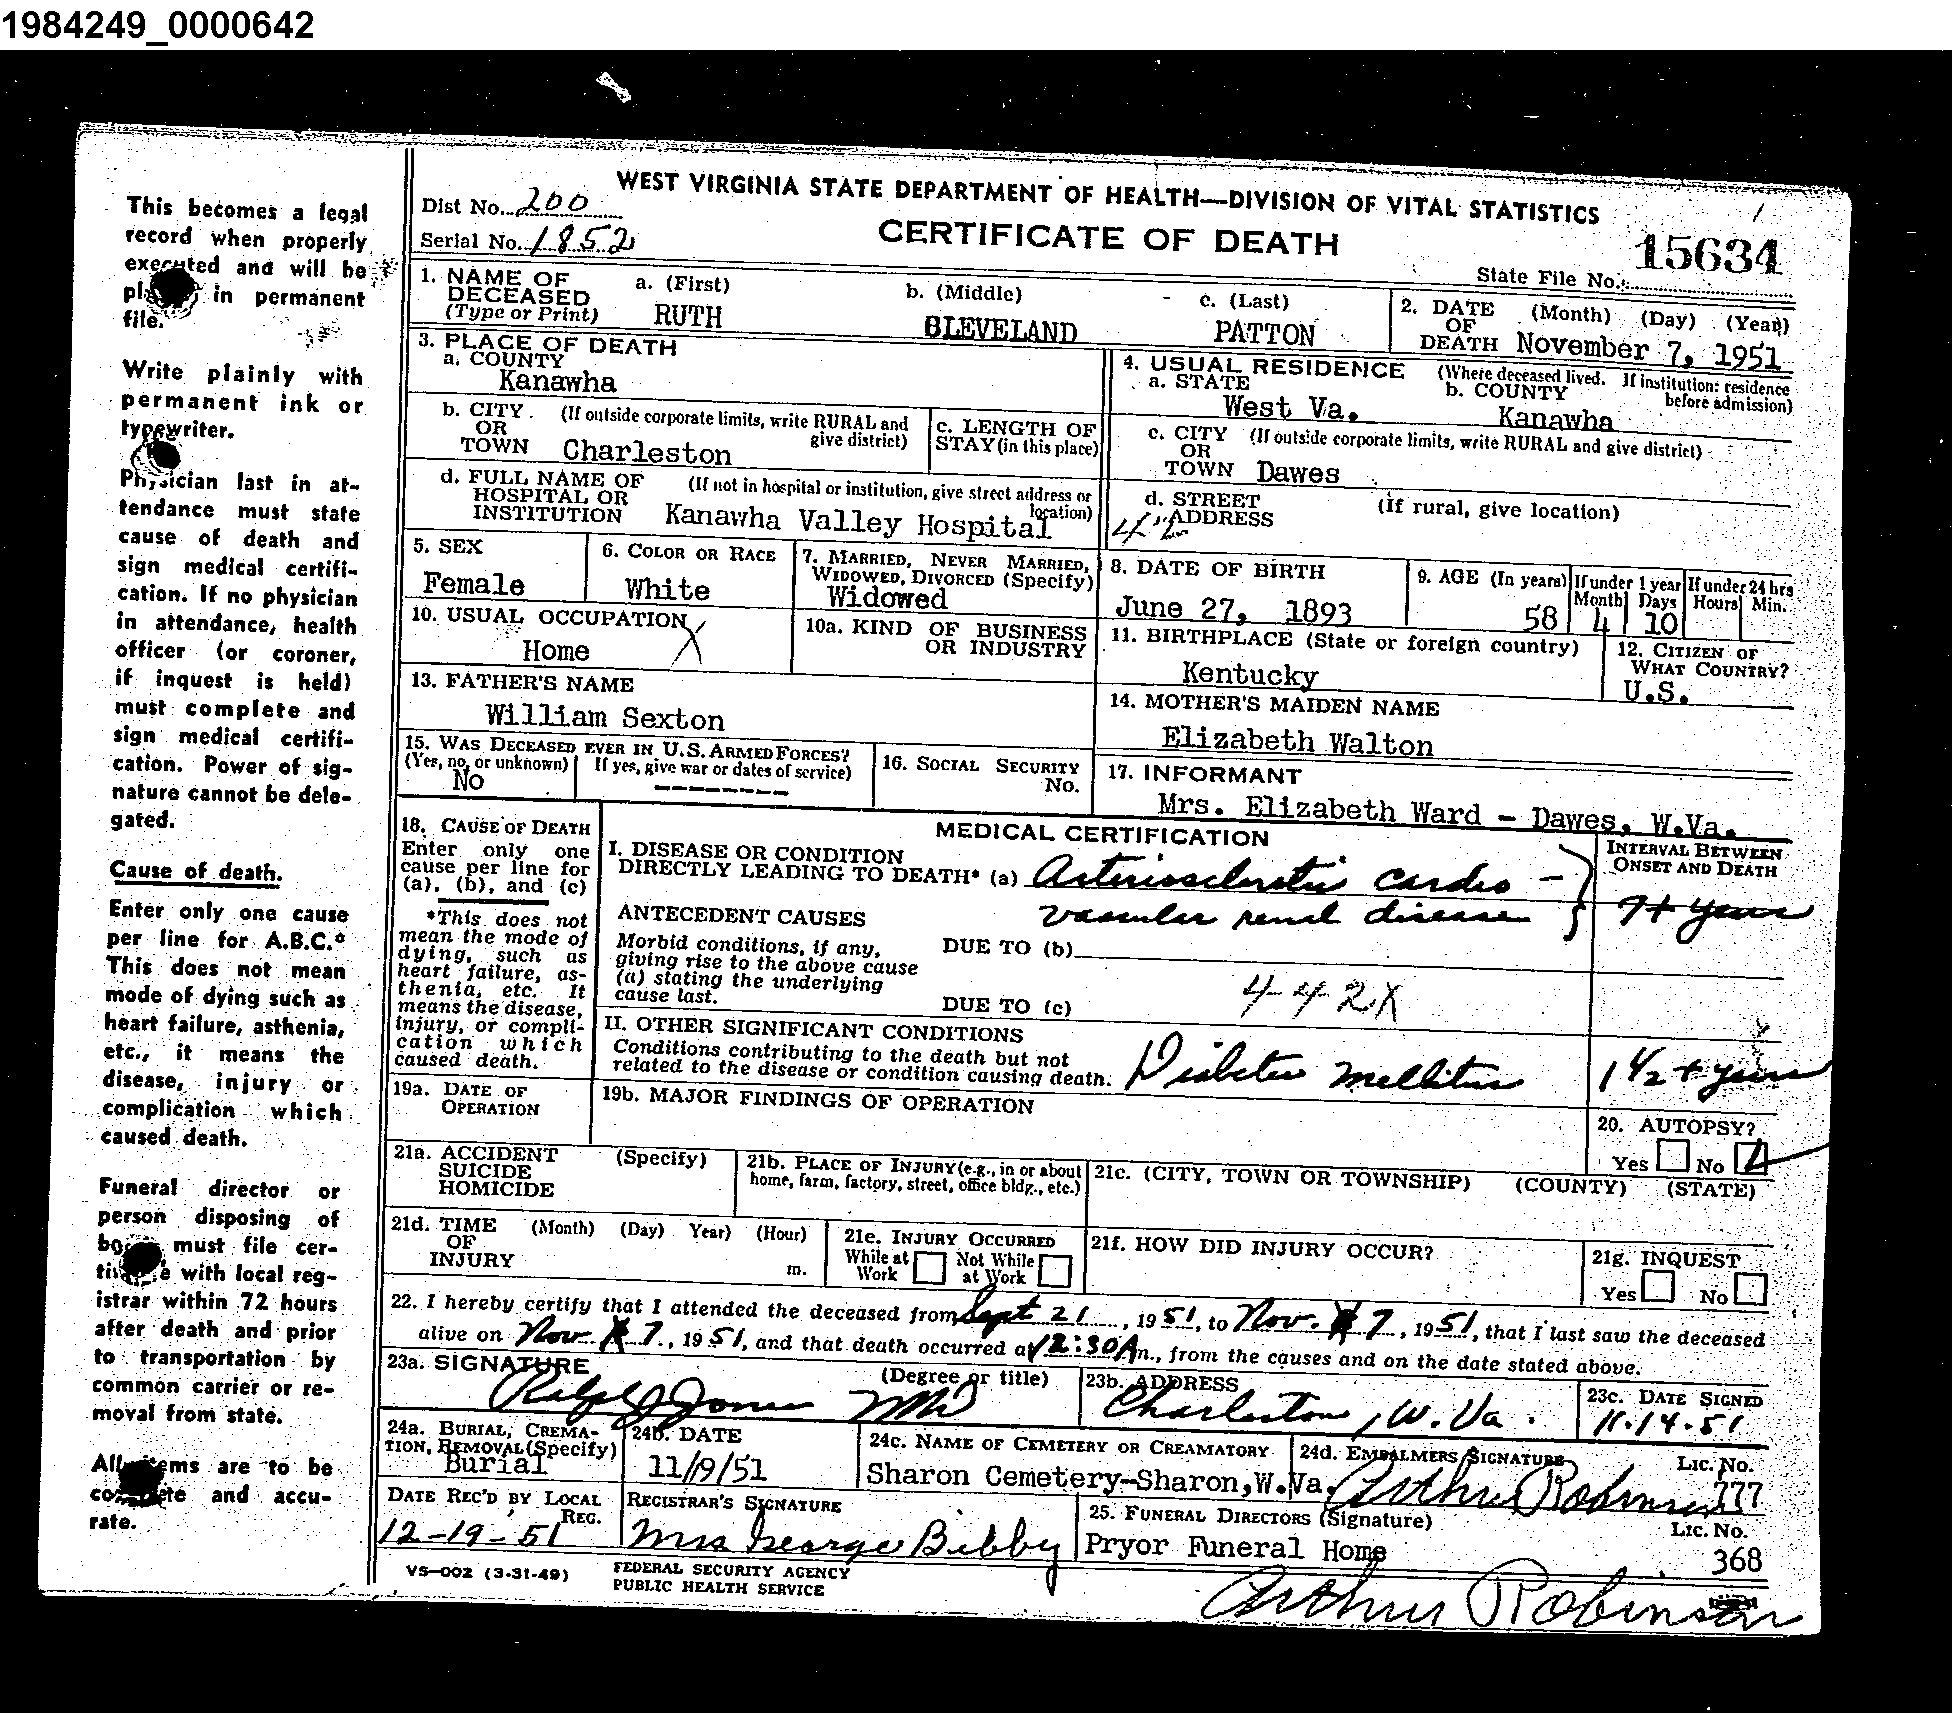 1984249_0000642
This becomes a legal
record when properly
executed and will be
in permanent
file.
Write plainly with
permanent ink or
typewriter.
Physician last in at-
tendance must state
cause of death and
sign medical certifi-
cation. If no physician
in attendance, health
officer (or coroner,
if inquest is held)
must complete and
sign medical certifi-
cation. Power of sig-
nature cannot be dele-
gated.
Cause of death.
Enter only one cause
per line for A.B.C.*
This does not mean
mode of dying such as
heart failure, asthenia,
etc., it means the
disease, injury or
complication which
caused death.
Funeral director or
person disposing of
must file cer-
with local reg-
istrar within 72 hours
after death and prior
to transportation by
common carrier or re-
moval from state.
All items are to be
and accu-
rate.
WEST VIRGINIA STATE DEPARTMENT OF HEALTH—DIVISION OF VITAL STATISTICS
Dist No. 200
Serial No. 1852
CERTIFICATE OF DEATH
15634
State File No.
1. NAME OF DECEASED (Type or Print) a. (First) b. (Middle) c. (Last)
RUTH BLEVELAND PATTON
2. DATE OF DEATH (Month) (Day) (Year)
November 7, 1951
3. PLACE OF DEATH
a. COUNTY
Kanawha
4. USUAL RESIDENCE (Where deceased lived. If institution: residence before admission)
a. STATE b. COUNTY
West Va. Kanawha
b. CITY OR TOWN (If outside corporate limits, write RURAL and give district)
Charleston
c. LENGTH OF STAY (in this place)
c. CITY OR TOWN (If outside corporate limits, write RURAL and give district)
Dawes
d. FULL NAME OF HOSPITAL OR INSTITUTION (If not in hospital or institution, give street address or location)
Kanawha Valley Hospital
d. STREET ADDRESS (If rural, give location)
5. SEX
Female
6. COLOR OR RACE
White
7. MARRIED, NEVER MARRIED, WIDOWED, DIVORCED (Specify)
Widowed
8. DATE OF BIRTH
June 27, 1893
9. AGE (In years) If under 1 year Month Days If under 24 hrs Hours Min.
58 4 10
10. USUAL OCCUPATION
Home X
10a. KIND OF BUSINESS OR INDUSTRY
11. BIRTHPLACE (State or foreign country)
Kentucky
12. CITIZEN OF WHAT COUNTRY?
U.S.
13. FATHER'S NAME
William Sexton
14. MOTHER'S MAIDEN NAME
Elizabeth Walton
15. WAS DECEASED EVER IN U.S. ARMED FORCES?
(Yes, no, or unknown) If yes, give war or dates of service)
No --------
16. SOCIAL SECURITY No.
17. INFORMANT
Mrs. Elizabeth Ward - Dawes, W.Va.
18. CAUSE OF DEATH
Enter only one
cause per line for
(a), (b), and (c)
*This does not
mean the mode of
dying, such as
heart failure, as-
thenia, etc. It
means the disease,
injury, or compli-
cation which
caused death.
MEDICAL CERTIFICATION
INTERVAL BETWEEN ONSET AND DEATH
I. DISEASE OR CONDITION
DIRECTLY LEADING TO DEATH* (a) Arteriosclerotic cardio-
vascular renal disease
7+ years
ANTECEDENT CAUSES
Morbid conditions, if any,
giving rise to the above cause
(a) stating the underlying
cause last.
DUE TO (b)
DUE TO (c)
442X
II. OTHER SIGNIFICANT CONDITIONS
Conditions contributing to the death but not
related to the disease or condition causing death.
Diabetes mellitus 1 1/2 + years
19a. DATE OF OPERATION
19b. MAJOR FINDINGS OF OPERATION
20. AUTOPSY?
Yes No
21a. ACCIDENT SUICIDE HOMICIDE (Specify)
21b. PLACE OF INJURY (e.g., in or about home, farm, factory, street, office bldg., etc.)
21c. (CITY, TOWN OR TOWNSHIP) (COUNTY) (STATE)
21d. TIME OF INJURY (Month) (Day) Year) (Hour) m.
21e. INJURY OCCURRED
While at Work Not While at Work
21f. HOW DID INJURY OCCUR?
21g. INQUEST
Yes No
22. I hereby certify that I attended the deceased from Sept 21, 1951, to Nov. 7, 1951, that I last saw the deceased
alive on Nov. 7, 1951, and that death occurred at 12:30A m., from the causes and on the date stated above.
23a. SIGNATURE (Degree or title)
Ralph J Jones MD
23b. ADDRESS
Charleston, W. Va.
23c. DATE SIGNED
11.14.51
24a. BURIAL, CREMA-
TION, REMOVAL (Specify)
Burial
24b. DATE
11/9/51
24c. NAME OF CEMETERY OR CREAMATORY
Sharon Cemetery-Sharon, W.Va.
24d. EMBALMERS SIGNATURE Lic. No.
Arthur Robinson 777
DATE REC'D BY LOCAL REG.
12-19-51
REGISTRAR'S SIGNATURE
Mrs George Bibby
25. FUNERAL DIRECTORS (Signature) Lic. No.
Pryor Funeral Home 368
Arthur Robinson
VS-002 (3-31-49)
FEDERAL SECURITY AGENCY
PUBLIC HEALTH SERVICE